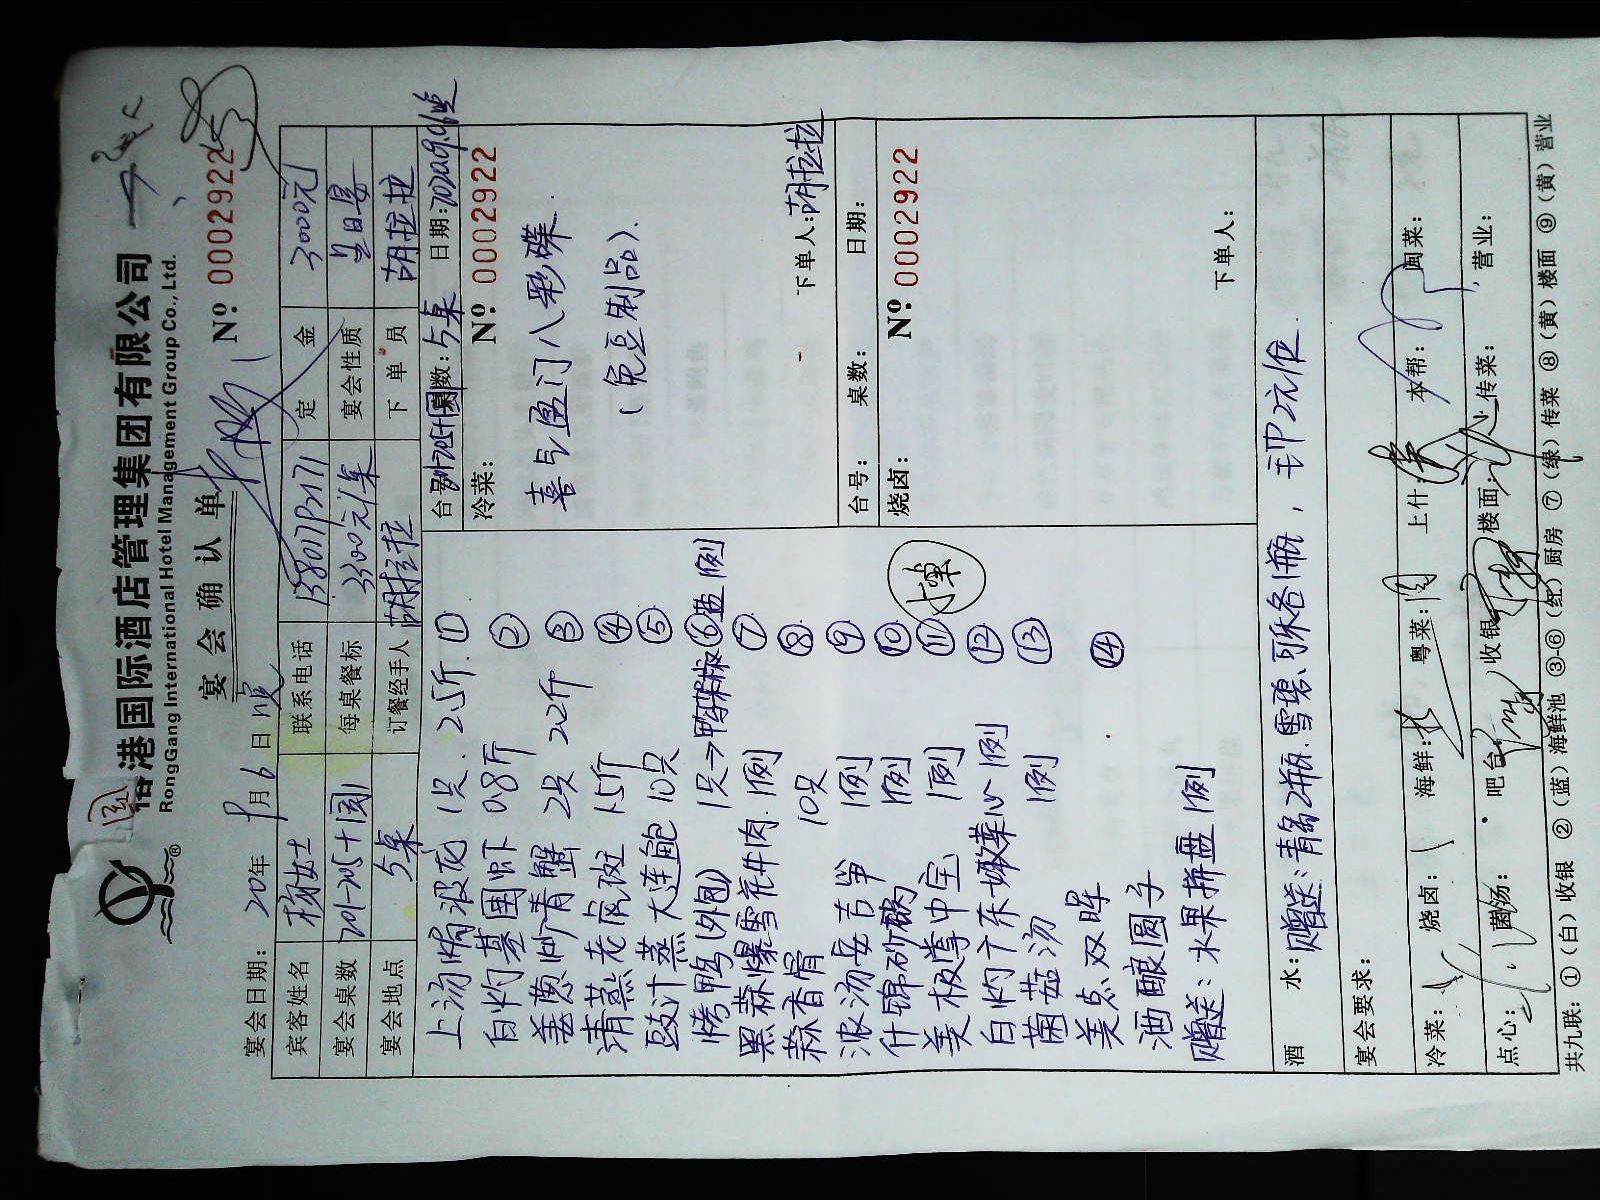 榕港国际酒店管理集团有限公司
RongGang International Hotel Management Group Co., Ltd.
宴会确认单
№ 0002922
宴会日期: 2020年 9月6日 晚
宾客姓名 杨女士 联系电话 定金 3000元
宴会桌数 201-205+圆1 每桌餐标 3300元/桌 宴会性质 生日宴
宴会地点 5桌 订餐经手人 胡拉拉 下单员 胡拉拉
上汤焗波龙 1只 2.5斤 ①
白灼基围虾 0.8斤 ②
姜葱炒青蟹 2只 2.2斤 ③
清蒸老虎斑 1.5斤 ④
豉汁蒸大连鲍 10只 ⑤
烤鸭(外包) 1只→鸭架椒盐 1例 ⑥
黑蒜爆雪花牛肉 1例 ⑦
蒜香骨 10只 ⑧
浓汤安吉笋 1例 ⑨
什锦砂锅 1例 ⑩
美极尊中宝 1例 ⑪
白灼广东嫩菜心 1例 ⑫
菌菇汤 1例 ⑬
美点双晖 ⑭
酒酿圆子
赠送:水果拼盘 1例
台号: 201-205+圆1 桌数: 5桌 日期: 2020.9.6晚
冷菜: № 0002922
喜与盈门八彩碟.
(免豆制品).
下单人: 胡拉拉
台号: 桌数: 日期:
烧卤: № 0002922
下单人:
酒水: 赠送:青岛2瓶.雪碧、可乐各1瓶,
宴会要求:
冷菜: 烧卤: 海鲜: 粤菜: 上什: 本帮: 闽菜:
点心: 菌汤: 吧台: 收银: 楼面: 传菜: 营业:
共九联: ①(白)收银 ②(蓝)海鲜池 ③-⑥(红)厨房 ⑦(绿)传菜 ⑧(黄)楼面 ⑨(黄)营业